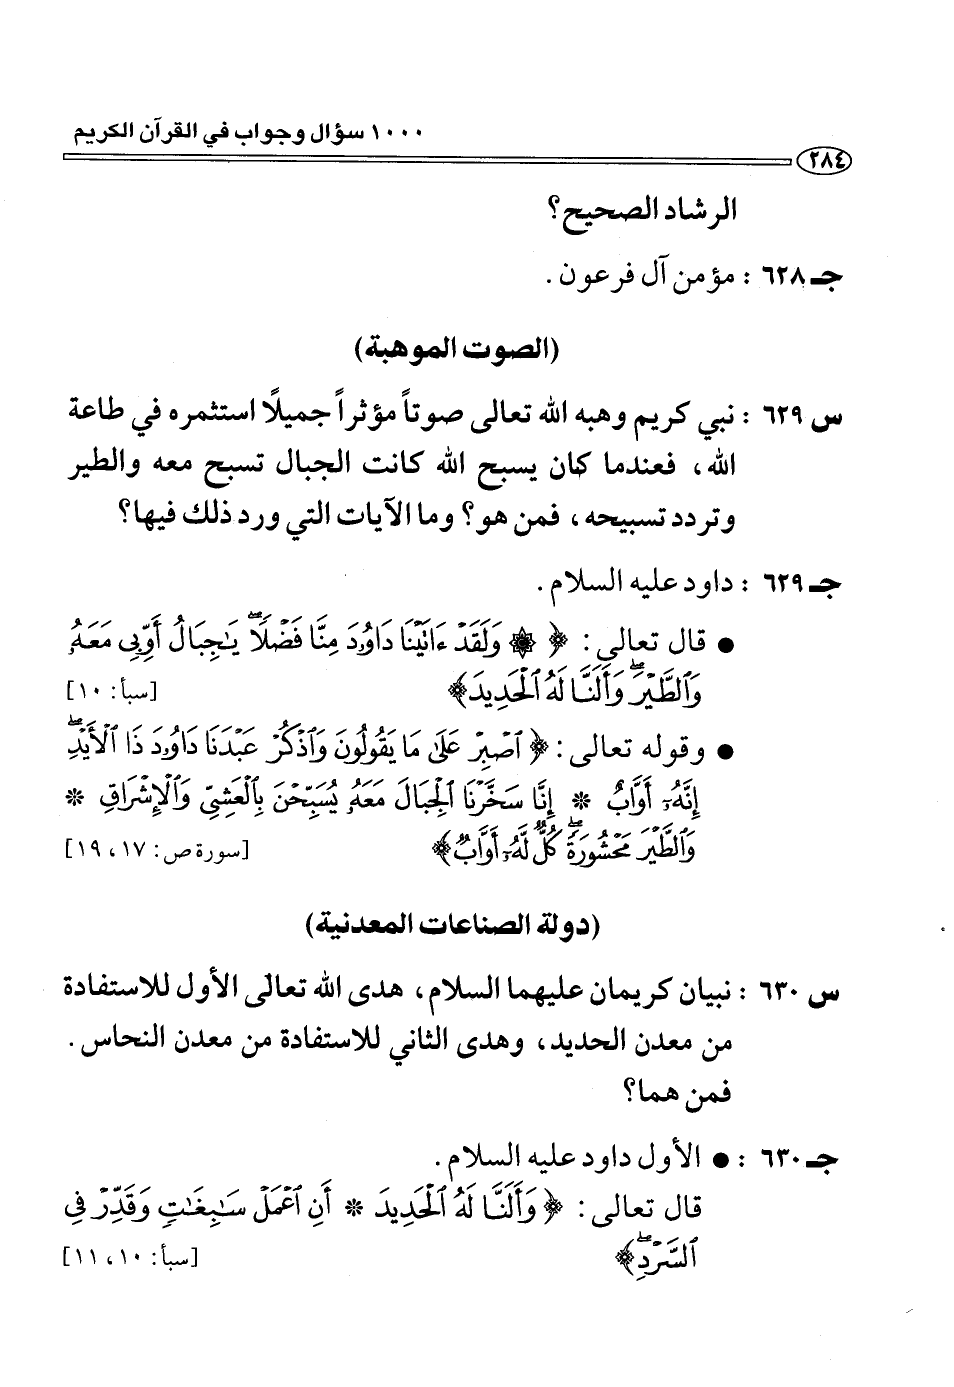 ١٠٠٠ سؤال وجواب في القرآن الكريم
٢٨٤
الرشاد الصحيح؟
جـ ٦٢٨ : مؤمن آل فرعون .
(الصوت الموهبة)
س ٦٢٩ : نبي كريم وهبه الله تعالى صوتاً مؤثراً جميلًا استثمره في طاعة
الله، فعندما كان يسبح الله كانت الجبال تسبح معه والطير
وتردد تسبيحه، فمن هو؟ وما الآيات التي ورد ذلك فيها؟
جـ ٦٢٩ : داود عليه السلام .
● قال تعالى : ﴿ ۞ وَلَقَدْ ءَاتَيْنَا دَاوُۥدَ مِنَّا فَضْلًاۖ يَٰجِبَالُ أَوِّبِى مَعَهُۥ
وَٱلطَّيْرَۖ وَأَلَنَّا لَهُ ٱلْحَدِيدَ﴾ [سبأ: ١٠]
● وقوله تعالى : ﴿ ٱصْبِرْ عَلَىٰ مَا يَقُولُونَ وَٱذْكُرْ عَبْدَنَا دَاوُۥدَ ذَا ٱلْأَيْدِۖ
إِنَّهُۥٓ أَوَّابٌ * إِنَّا سَخَّرْنَا ٱلْجِبَالَ مَعَهُۥ يُسَبِّحْنَ بِٱلْعَشِىِّ وَٱلْإِشْرَاقِ *
وَٱلطَّيْرَ مَحْشُورَةًۖ كُلٌّ لَّهُۥٓ أَوَّابٌ﴾ [سورة ص: ١٧، ١٩]
(دولة الصناعات المعدنية)
س ٦٣٠ : نبيان كريمان عليهما السلام، هدى الله تعالى الأول للاستفادة
من معدن الحديد، وهدى الثاني للاستفادة من معدن النحاس .
فمن هما؟
جـ ٦٣٠ : ● الأول داود عليه السلام .
قال تعالى : ﴿ وَأَلَنَّا لَهُ ٱلْحَدِيدَ * أَنِ ٱعْمَلْ سَٰبِغَٰتٍ وَقَدِّرْ فِى
ٱلسَّرْدِۖ﴾ [سبأ: ١٠، ١١]